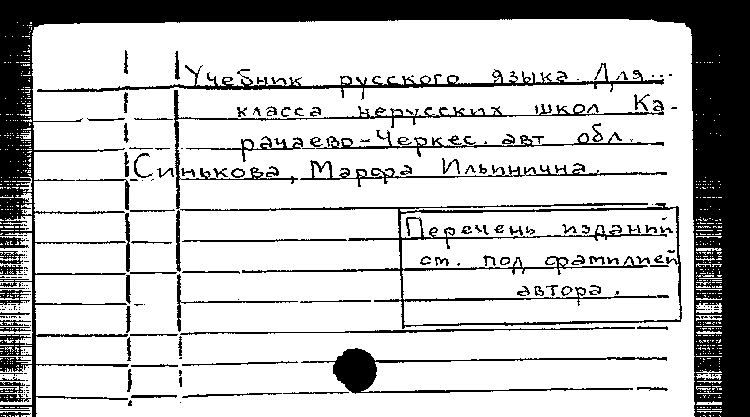 Учебник русского языка. Для...
класса нерусских школ Ка-
рачаево-Черкес. авт обл.
Синькова, Марфа Ильинична.
Перечень изданий
см. под фамилией
автора.